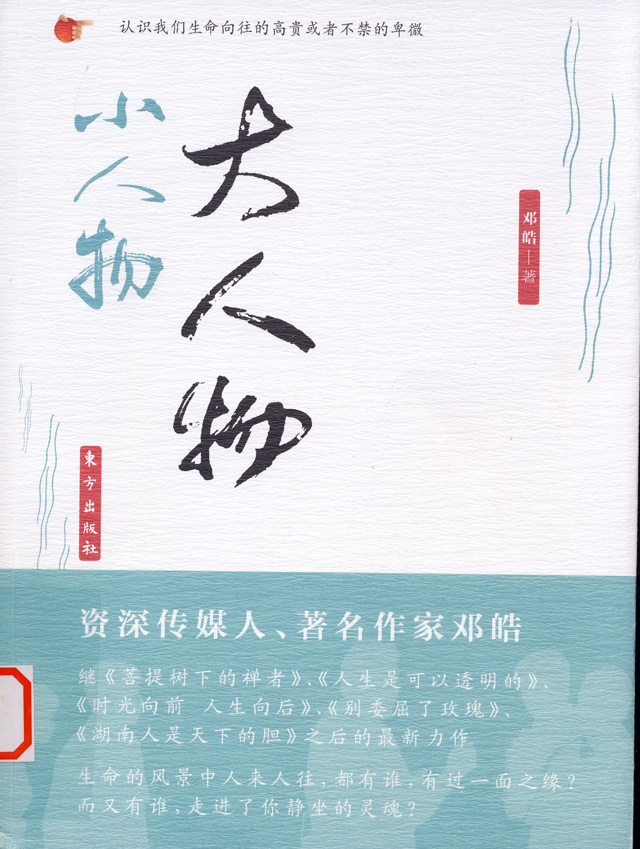 认识我们生命向往的高贵或者不禁的卑微
大人物
小人物
邓皓—著
東方出版社
资深传媒人、著名作家邓皓
继《菩提树下的禅者》、《人生是可以透明的》、
《时光向前 人生向后》、《别委屈了玫瑰》、
《湖南人是天下的胆》之后的最新力作
生命的风景中人来人往，都有谁，有过一面之缘？
而又有谁，走进了你静坐的灵魂？